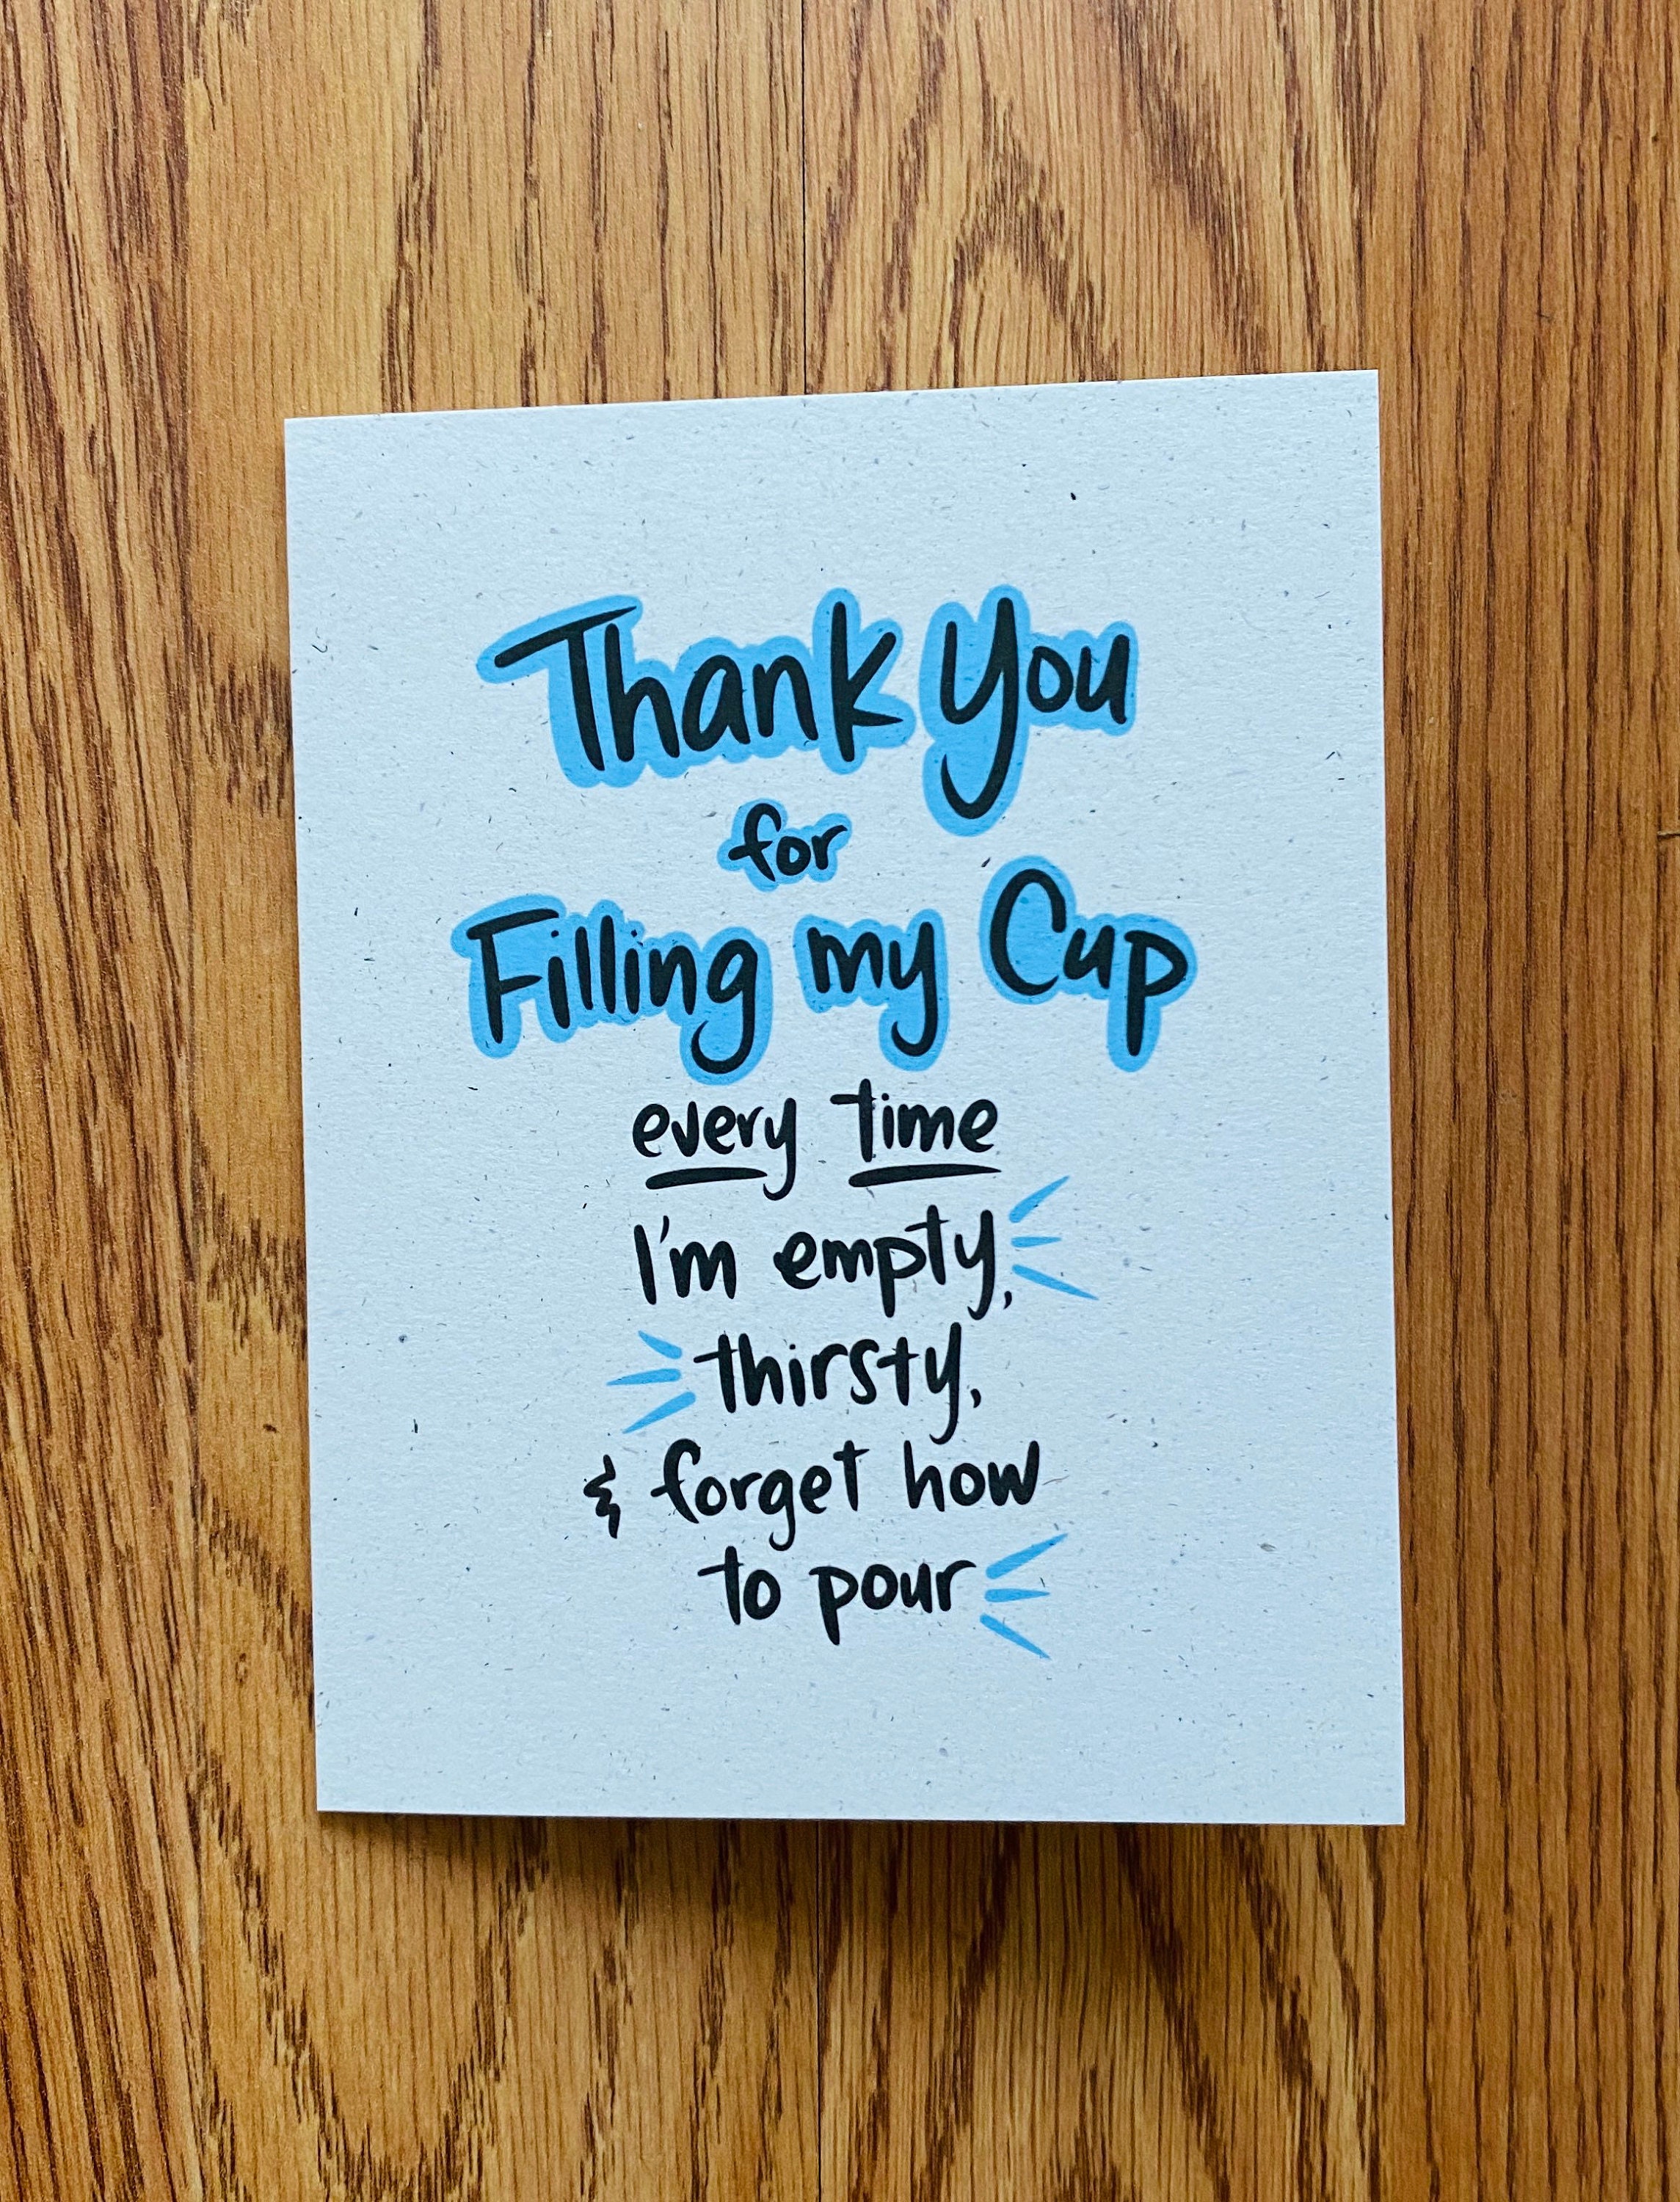 Thank You
for
Filling my Cup
every time
I'm empty,
thirsty,
& forget how
to pour